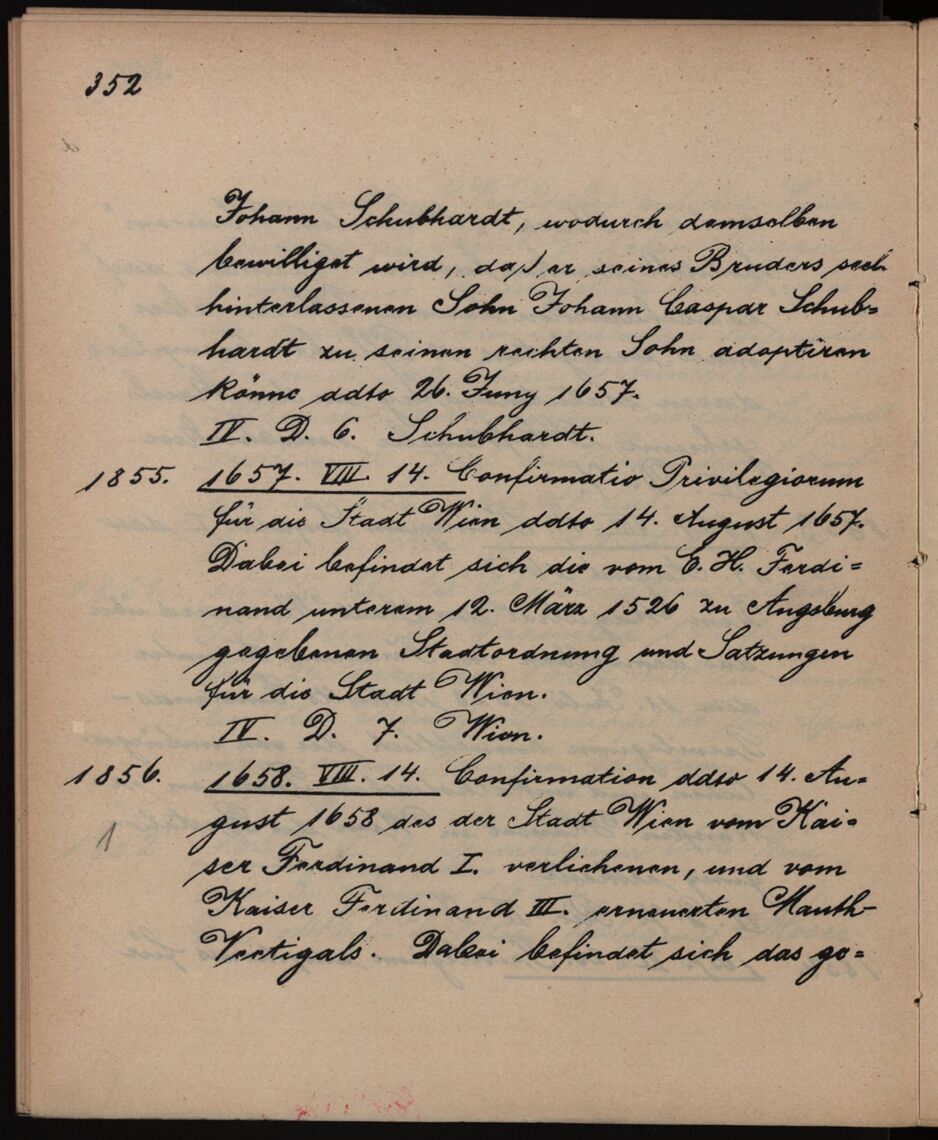 352
Johann Schubhardt, wodurch demselben
bewilliget wird, daß er seines Bruders seel.
hinterlassenen Sohn Johann Caspar Schub=
hardt zu seinen rechten Sohn adoptiren
könne ddto 26. Juny 1657.
IV. D. 6. Schubhardt.
1855. 1657. VIII. 14. Confirmatio Privilegiorum
für die Stadt Wien ddto 14. August 1657.
Dabei befindet sich die vom E. H. Ferdi=
nand unterem 12. März 1526 zu Augsburg
gegebenen Stadtordnung und Satzungen
für die Stadt Wien.
IV. D. 7. Wien.
1856. 1658. VIII. 14. Confirmation ddto 14. Au=
1 gust 1658 des der Stadt Wien vom Kai=
ser Ferdinand I. verliehenen, und vom
Kaiser Ferdinand III. erneuerten Mauth-
Vectigals. Dabei befindet sich das ge=